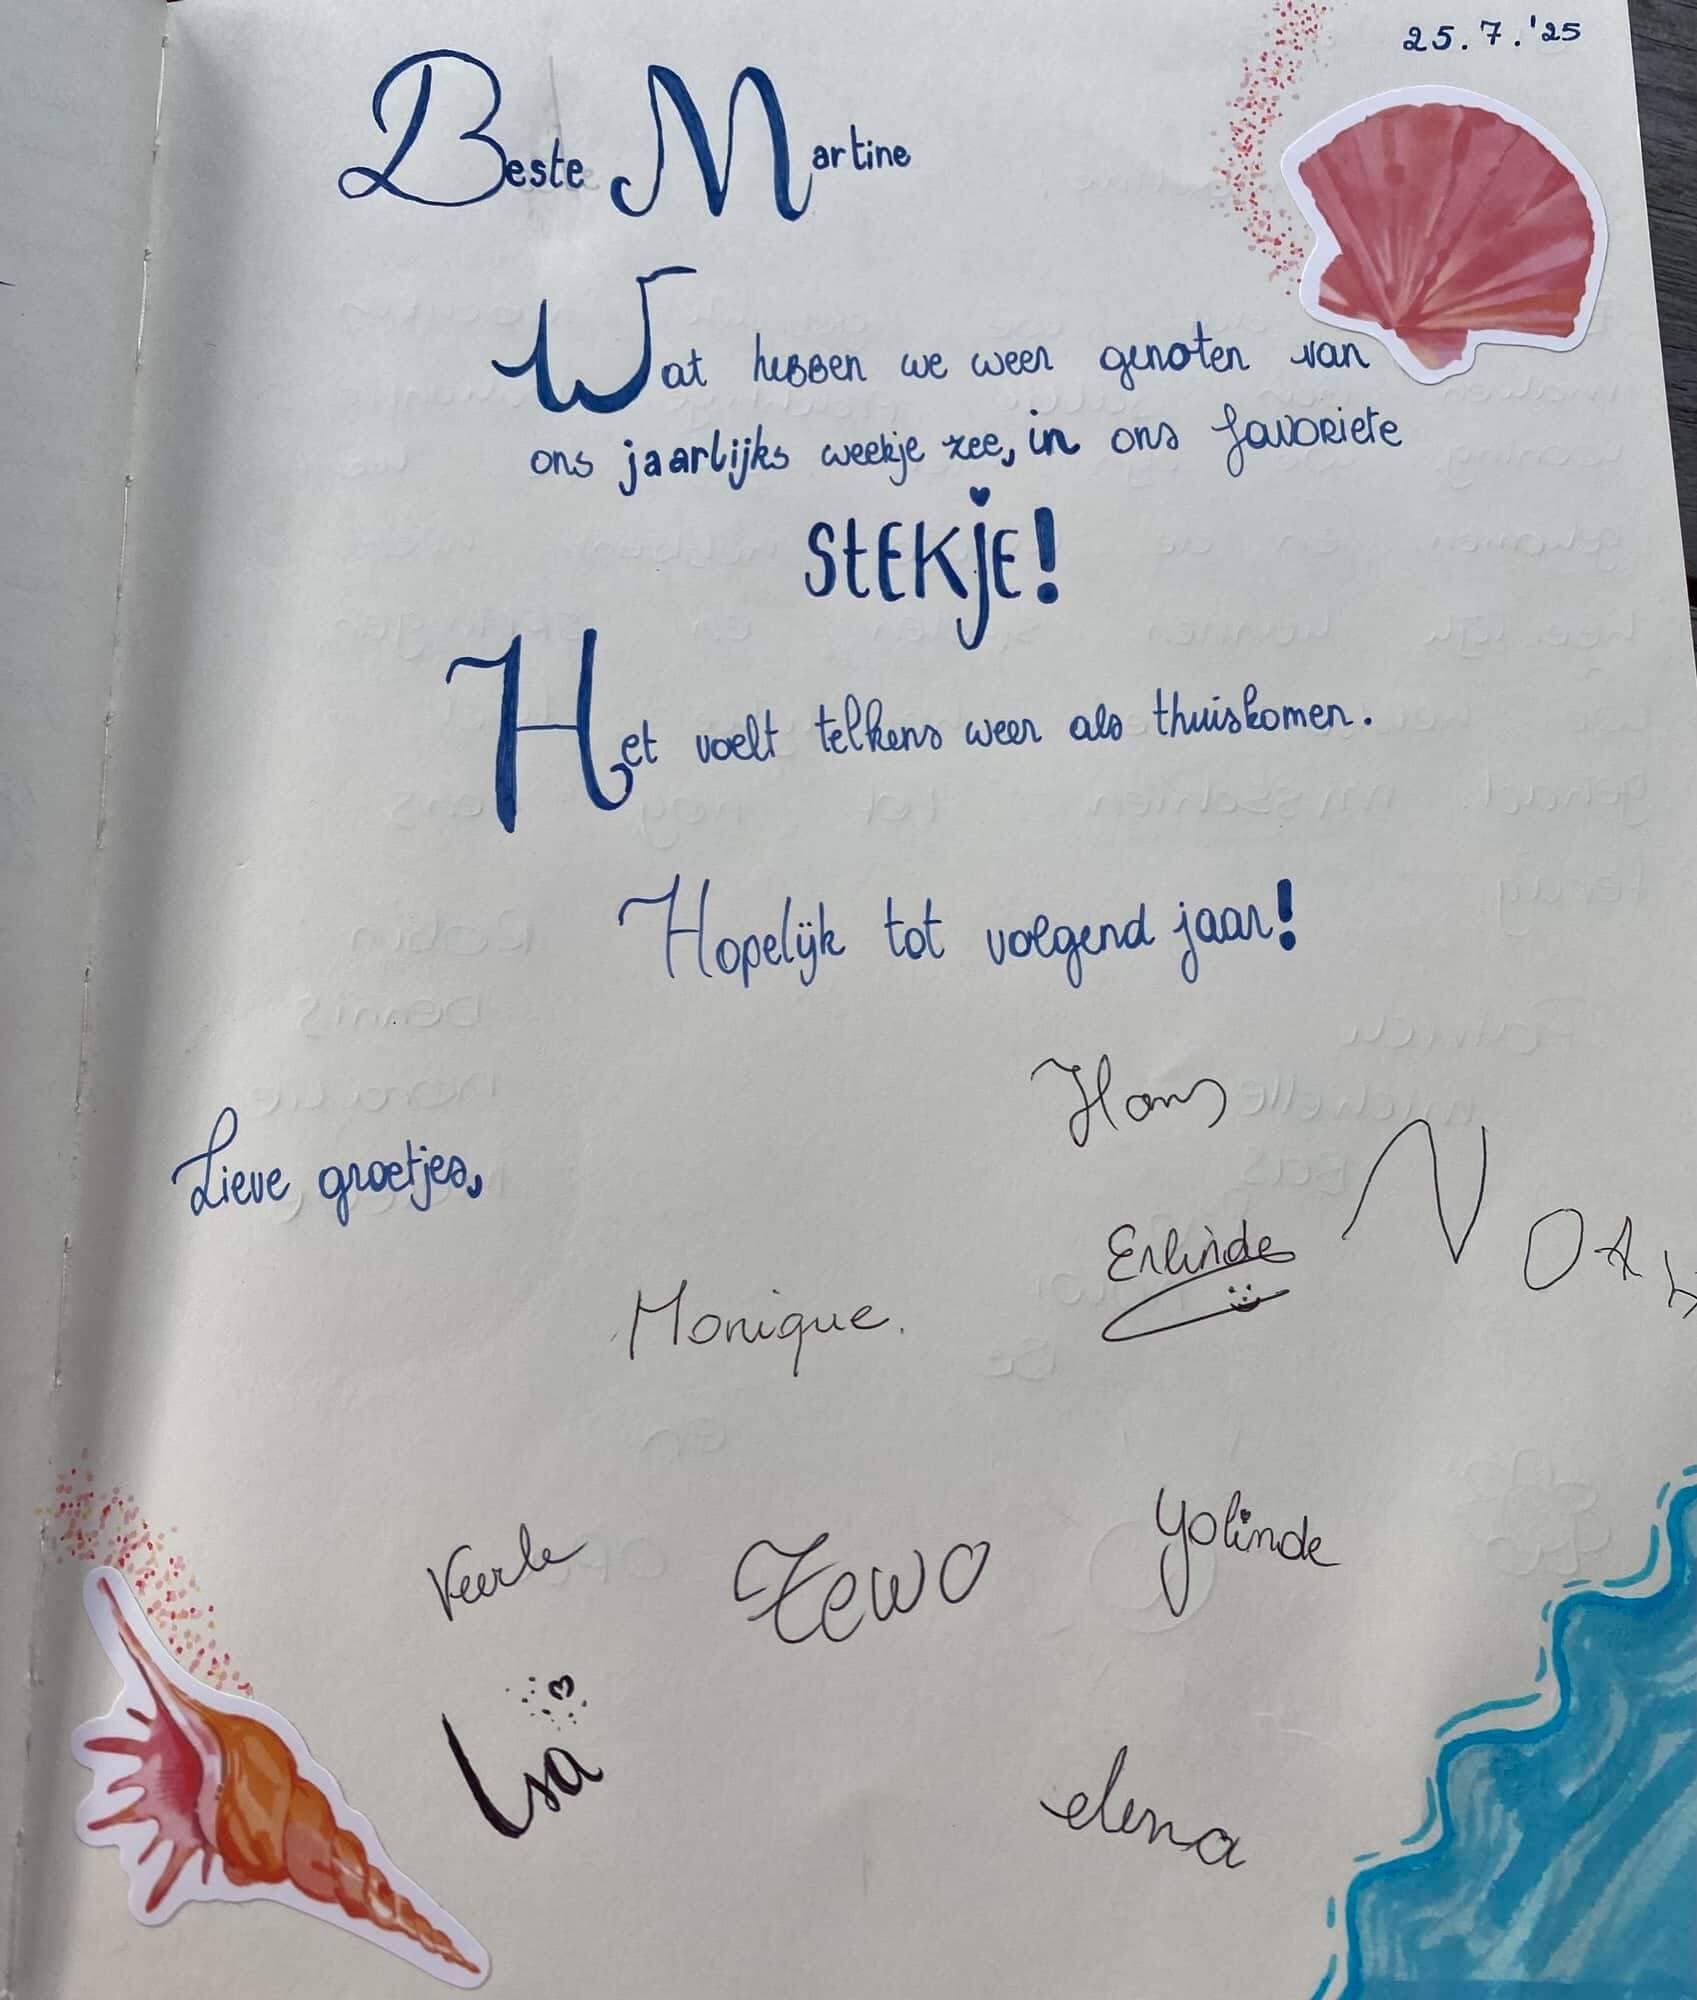 25.7.'25
Beste Martine
Wat hebben we weer genoten van
ons jaarlijks weekje zee, in ons favoriete
STEKJE!
Het voelt telkens weer als thuiskomen.
Hopelijk tot volgend jaar!
Lieve groetjes,
Hans
Erlinde
Monique.
Veerle
Yolinde
Isa
elena